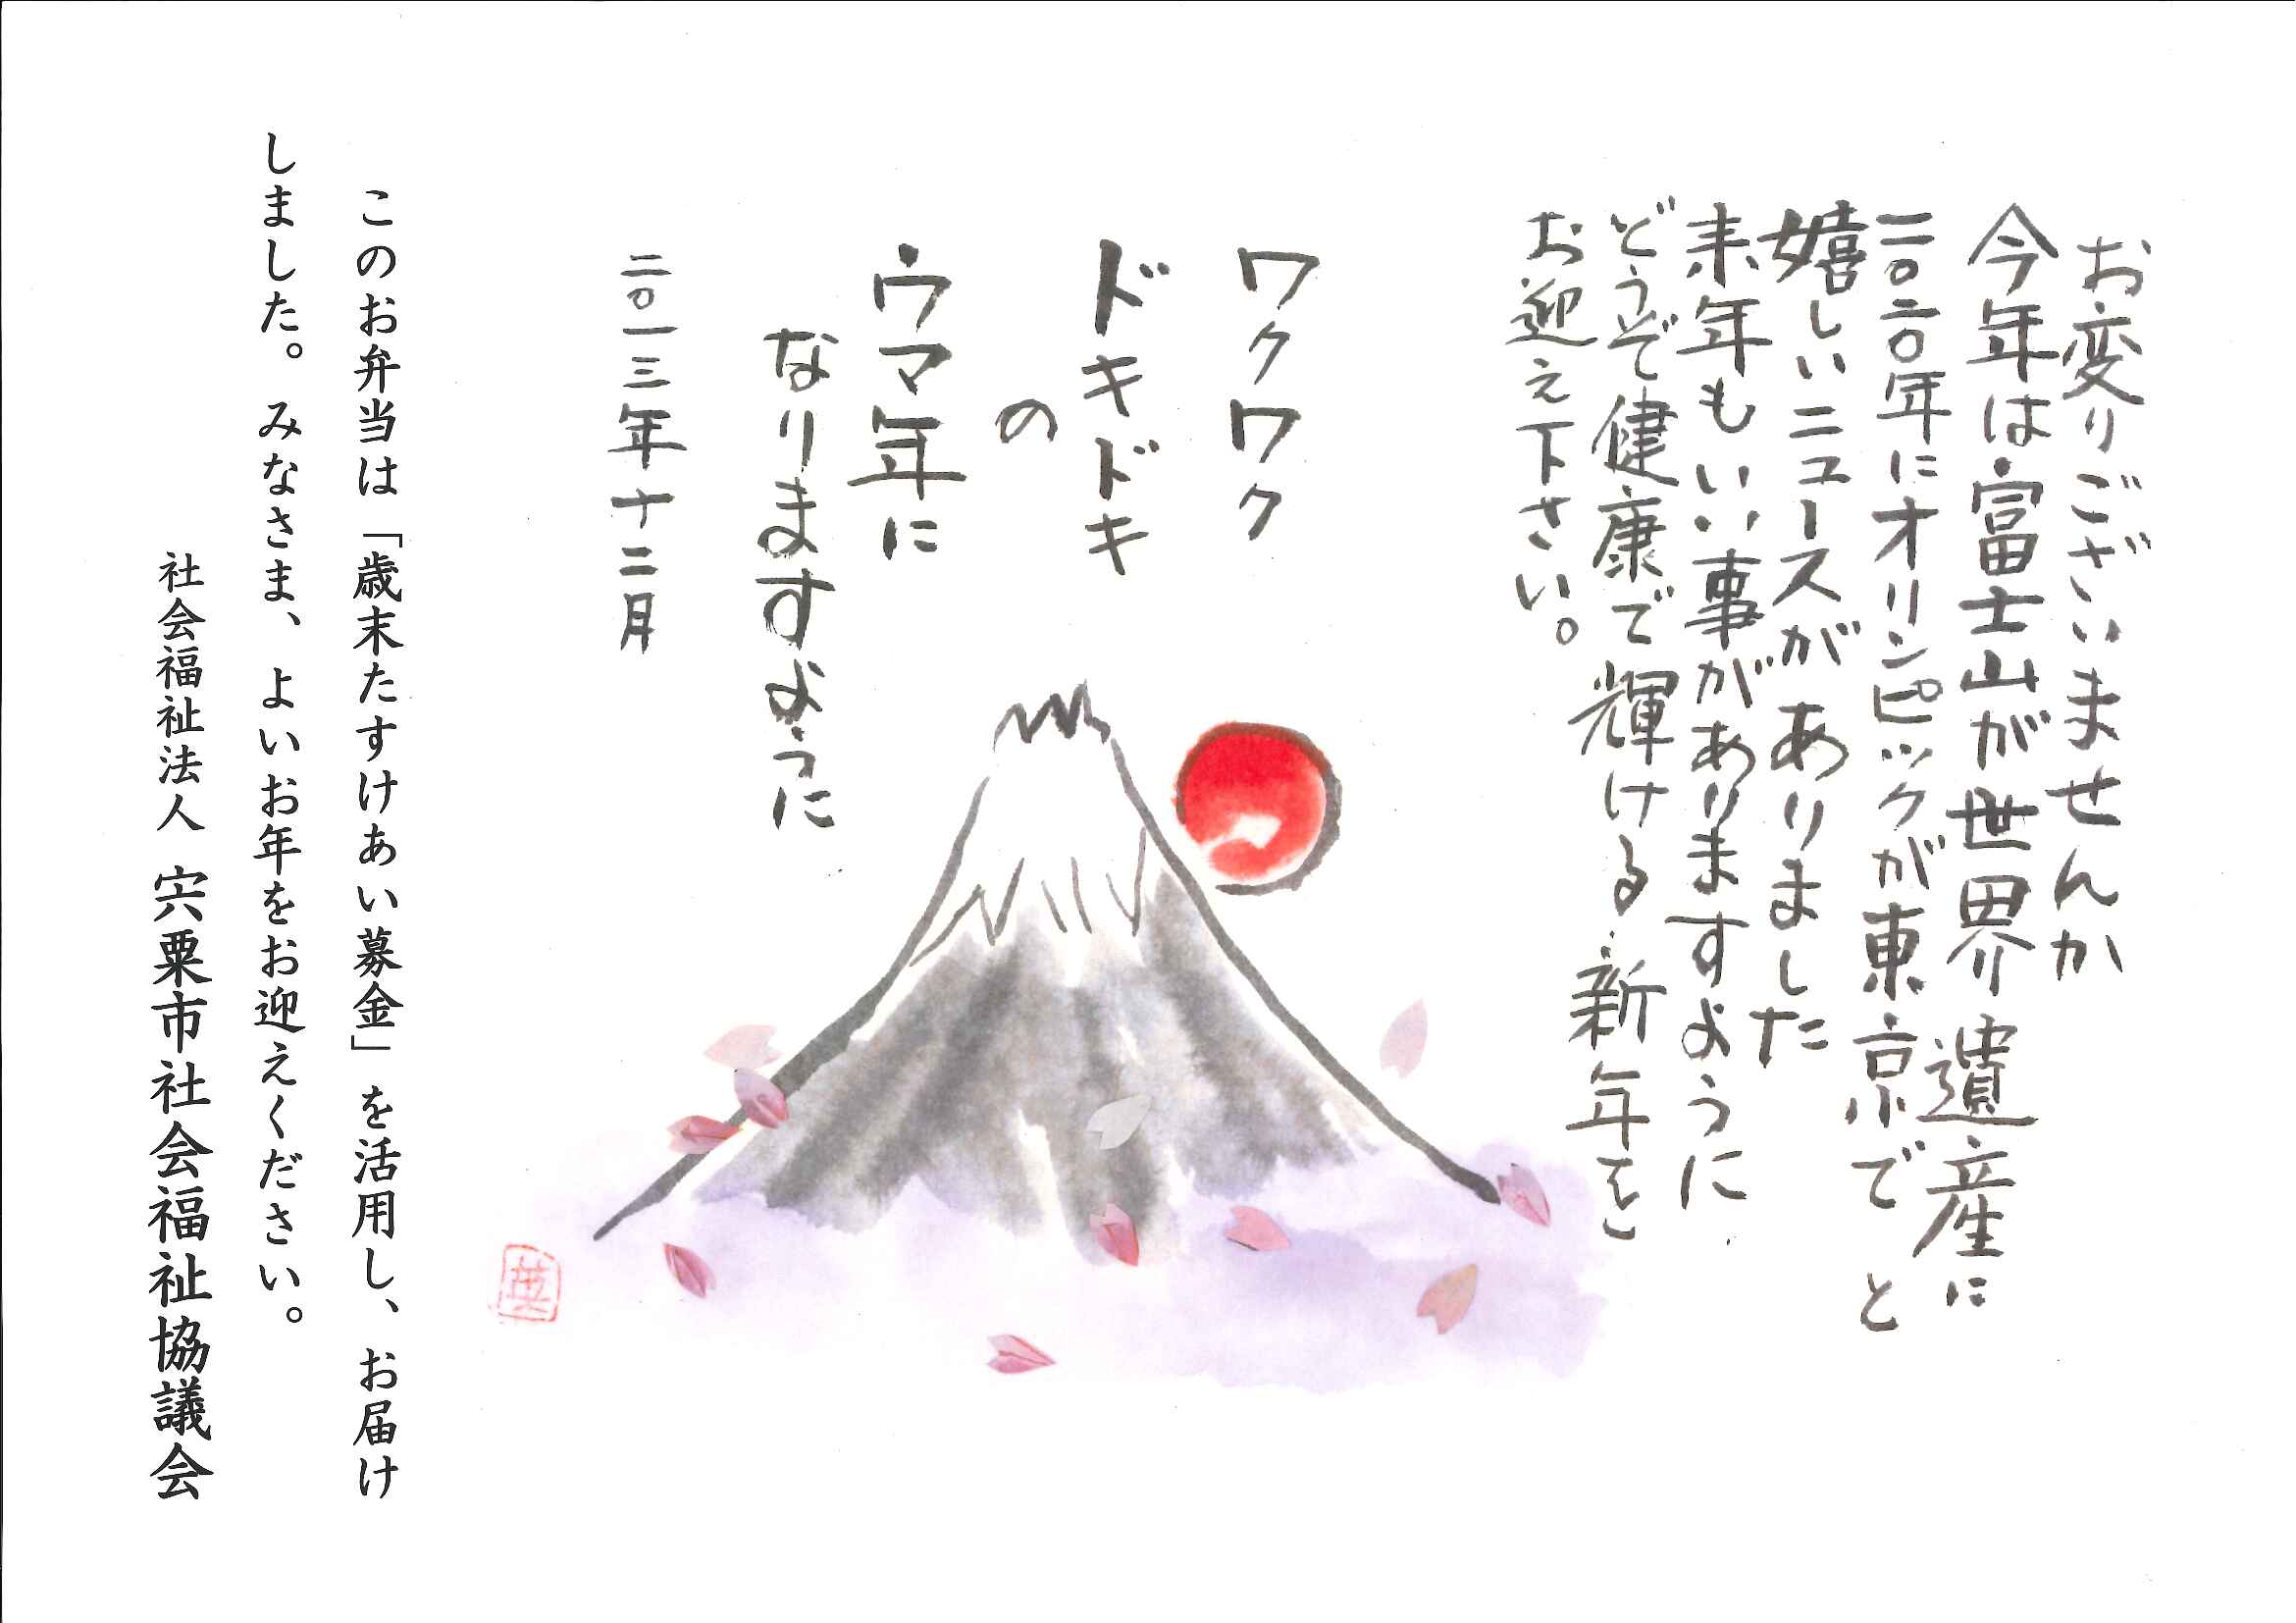 お変りございませんか
今年は富士山が世界遺産に
二〇二〇年にオリンピックが東京でと
嬉しいニュースがありました
来年もいい事がありますように
どうぞ健康で輝ける新年を
お迎え下さい。
ワクワク
ドキドキ
の
ウマ年に
なりますように
二〇一三年十二月
英
このお弁当は「歳末たすけあい募金」を活用し、お届け
しました。みなさま、よいお年をお迎えください。
社会福祉法人 宍粟市社会福祉協議会